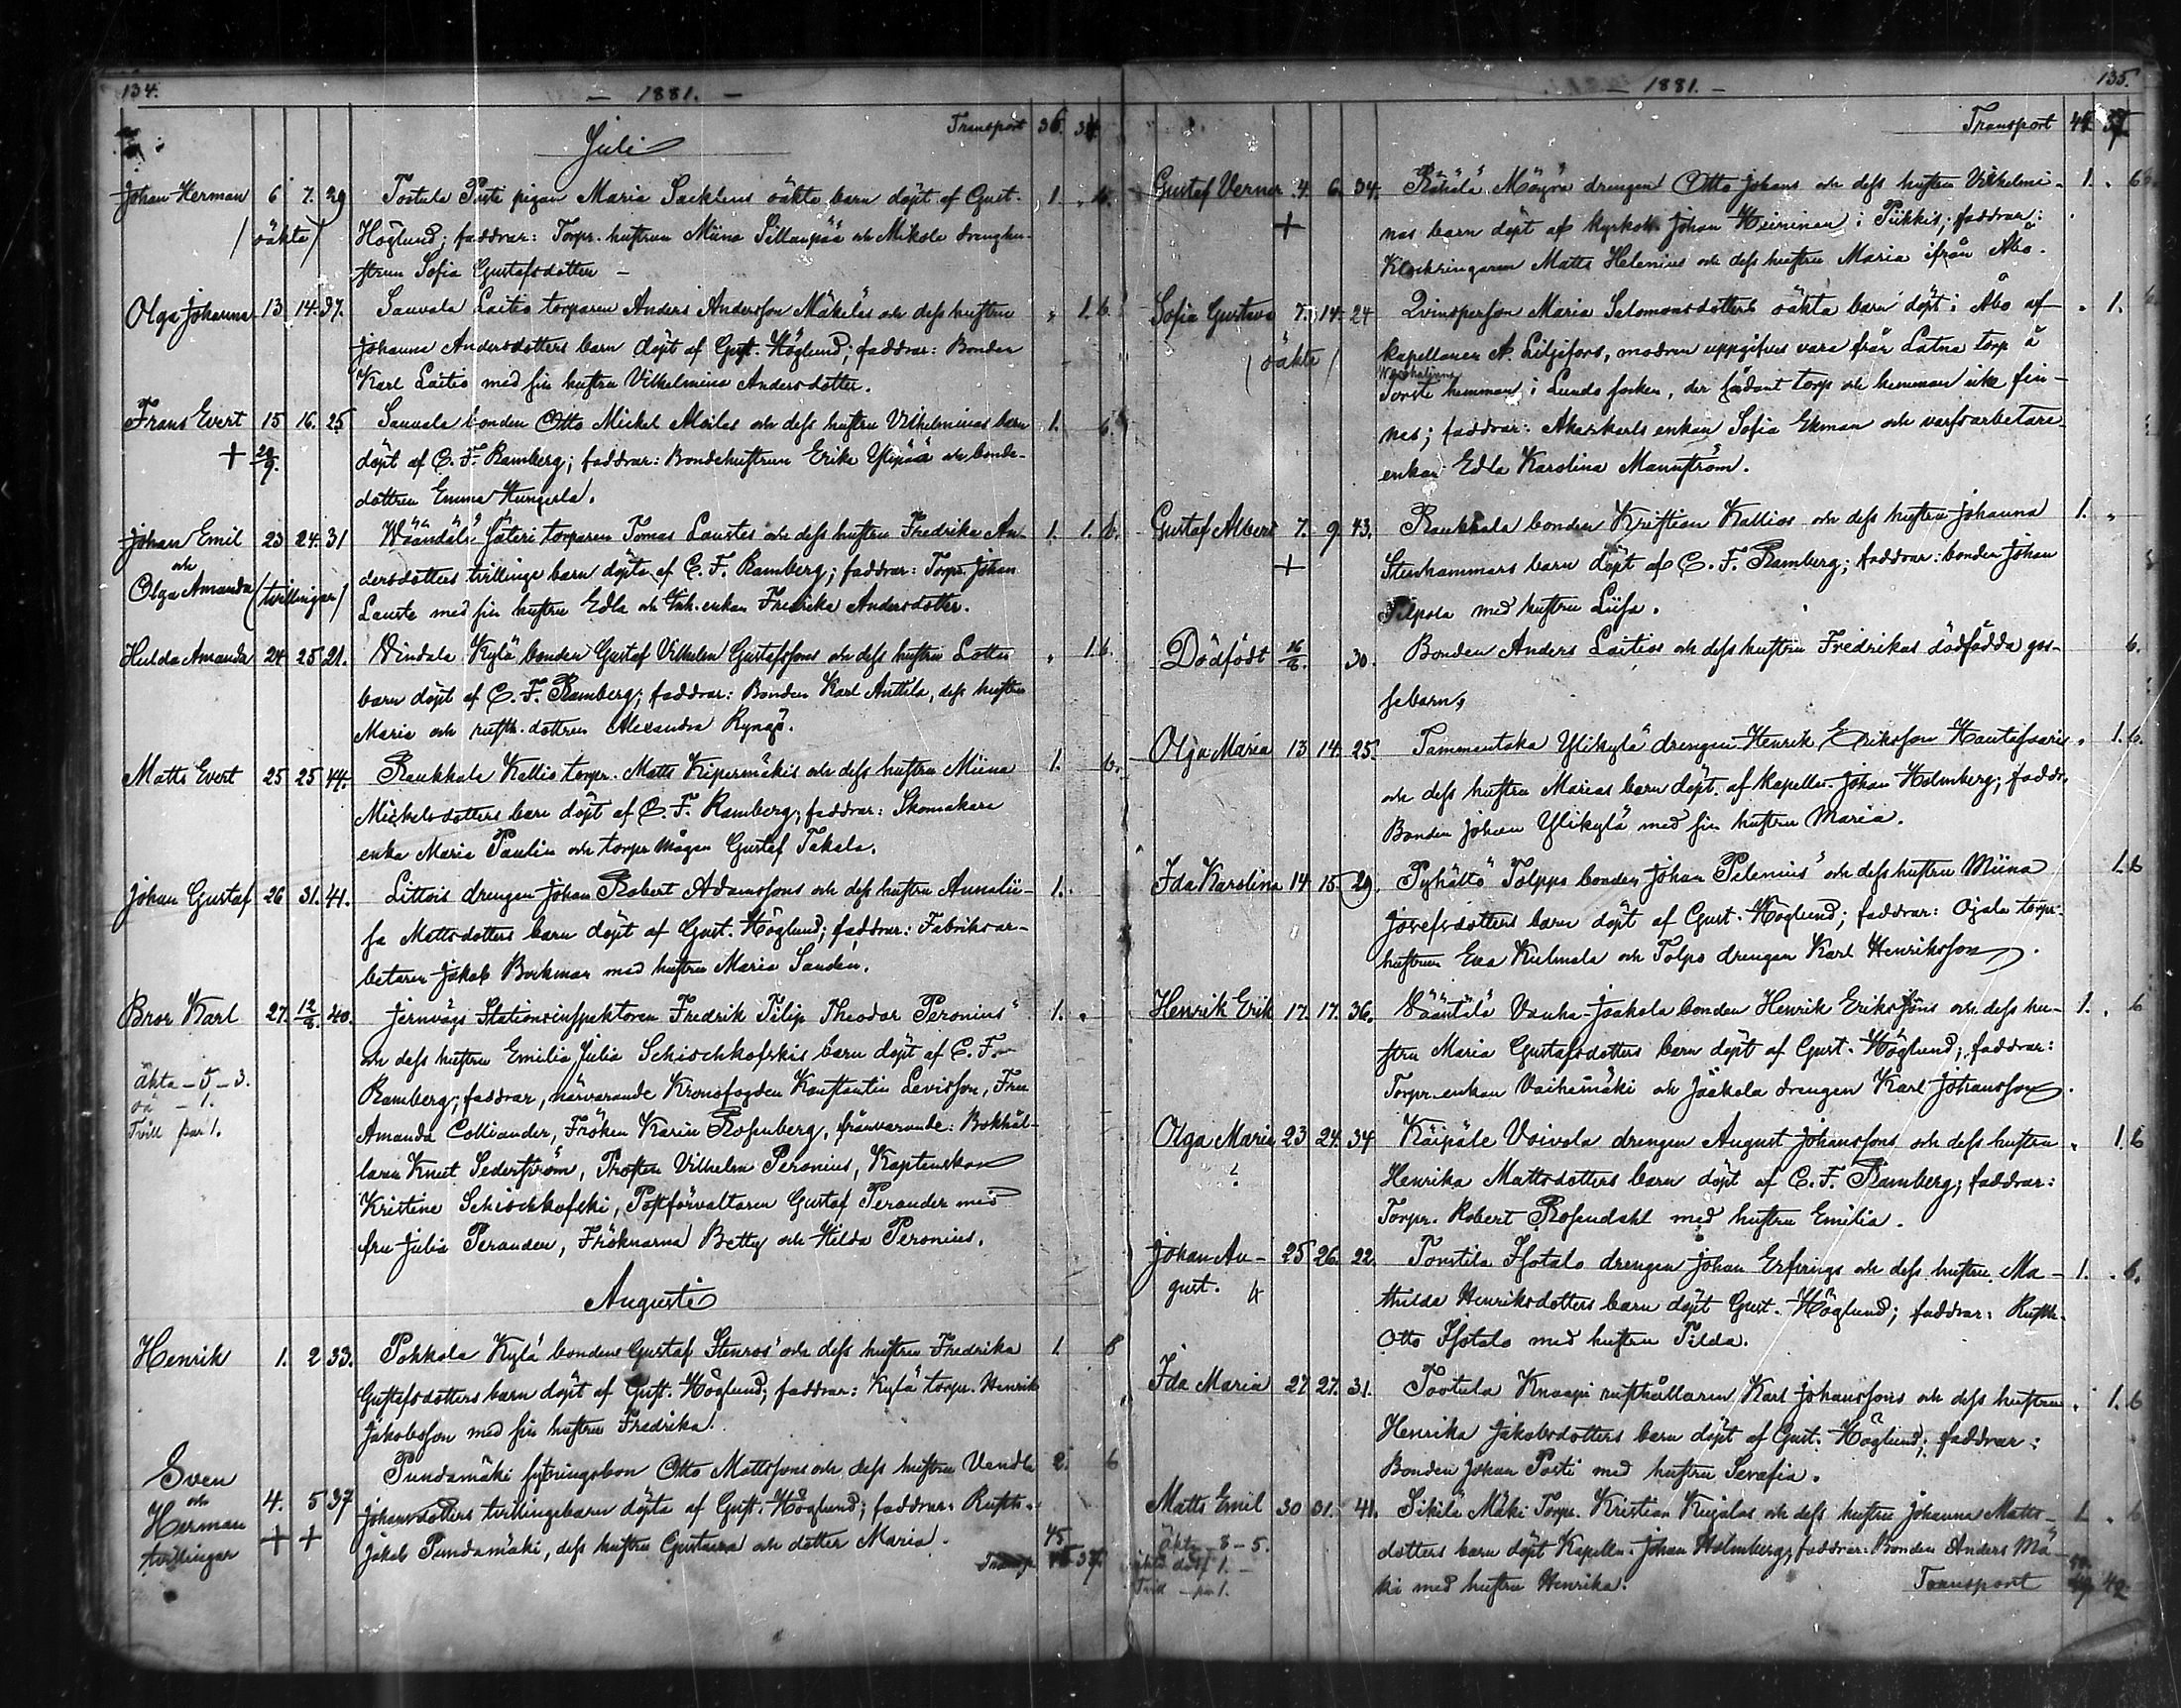 134.
— 1881. —
Juli
Transport 36. 34.
Johan Herman 6 7. 29 Tostula Posti pigan Maria Sacklens oäkta barn döpt af Gust. 1. „ 6.
(oäkta) Höglund; faddrar: Torpr. hustrun Miina Sillanpää och Mikola dränghu-
strun Sofia Gustafsdotter —
Olga Johanna 13 14. 37. Sauvala Laitio torparen Anders Andersson Mäkeläs och dess hustru „ 1. 6.
Johanna Andersdotters barn döpt af Gust. Höglund; faddrar: Bonden
Karl Laitio med sin hustru Vilhelmina Andersdotter.
Frans Evert 15 16. 25. Sauvala bonden Otto Mickel Alilas och dess hustru Vilhelminas barn 1. 6.
+ 29/9. döpt af C. F. Ramberg; faddrar: Bondehustrun Erika Ylipää och bonde-
dottren Emma Hungerla.
Johan Emil 23 24. 31 Wääntälä Säteri torparen Tomas Laustes och dess hustru Fredrika An- 1. 1. 6.
och dersdotters tvillinge barn döpta af C. F. Ramberg; faddrar: Torpr. Johan
Olga Amanda (tvillingar) Lauste med sin hustru Edla och Inh. enkan Fredrika Andersdotter.
Hulda Amanda 24 25 21. Vindala Kylä bonden Gustaf Vilhelm Gustafssons och dess hustru Lottas „ 1. 6.
barn döpt af C. F. Ramberg; faddrar: Bonden Karl Anttila, dess hustru
Maria och rusth. dottren Alexandra Ryngö.
Matts Evert 25 25 44. Raukkala Kallio torpr. Matts Kipermäkis och dess hustru Miina 1. 6.
Mickelsdotters barn döpt af C. F. Ramberg; faddrar: Skomakare
enka Maria Paulin och torpr mågen Gustaf Takala.
Johan Gustaf 26 31. 41. Littois drengen Johan Robert Adamssons och dess hustru Annalii- 1.
sa Mattsdotters barn döpt af Gust. Höglund; faddrar: Fabriksar-
betaren Jakob Borkman med hustru Maria Sandin.
Bror Karl 27. 12/8. 40. Jernvägs Stationsinspektoren Fredrik Filip Theodor Peronius' 1. „
och dess hustru Emilia Julia Schischkofskis barn döpt af C. F.
äkta — 5 — 3. Ramberg; faddrar, närvarande Kronofogden Konstantin Levisson, Fru
oä — 1. Amanda Colliander, Fröken Karin Rosenberg, frånvarande: Bokhål-
Tvill par 1. laren Knut Sederström, Prosten Vilhelm Peronius, Kaptenskan
Kristine Schischkofski, Postförvaltaren Gustaf Perander med
fru Julia Perander, Fröknarna Betty och Hilda Peronius.
Augusti
Henrik 1. 2 33. Pokkola Kylä bonden Gustaf Stenros' och dess hustru Fredrika 1. 8
Gustafsdotters barn döpt af Gust. Höglund; faddrar: Kylä torpr. Henrik
Jakobsson med sin hustru Fredrika.
Sven Pundamäki sytningsbon Otto Mattssons och dess hustru Vendla 2. 6
och 4. 5 37 Johansdotters tvillingebarn döpta af Gust. Höglund; faddrar: Rusth.
Herman + + Jakob Pundamäki, dess hustru Gustava och dotter Maria.
tvillingar Transp. 45 37.
135.
— 1881. —
Transport 44. 37.
Gustaf Verner 4. 6. 34. Rähälä Möyrä drengen Otto Johans och dess hustru Vilhelmi- 1. „ 6
+ nas barn döpt af kyrkoh. Johan Heininen i Piikkis; faddrar:
Klockringaren Matts Helenius och dess hustru Maria ifrån Åbo.
Sofia Gustava 7. 14. 24 Qvinsperson Maria Salomonsdotters oäkta barn döpt i Åbo af „ 1.
(oäkta) kapellanen A. Liljefors, modren uppgifves vara från Latna torp å
Torste hemman i Lundo socken, der sådant torp och hemman icke fin-
nes; faddrar: Akarkarls enkan Sofia Ekman och varfsarbetare
enkan Edla Karolina Mannström.
Gustaf Albert 7. 9. 43. Raukkala bonden Kristian Kallios och dess hustru Johanna 1. „
+ Stenhammars barn döpt af C. F. Ramberg; faddrar: bonden Johan
Pilpola med hustru Liisa.
Dödfödt 16/8. 30. Bonden Anders Laitios och dess hustru Fredrikas dödfödda gos- 6.
sebarn,
Olga Maria 13 14. 25. Tammentaka Ylikylä drengen Henrik Eriksson Hautasaaris „ 1. 6.
och dess hustru Marias barn döpt af Kapelln. Johan Holmberg; faddr.
Bonden Johan Ylikylä med sin hustru Maria.
Ida Karolina 14 15. 29. Pyhältö Tolppo bonden Johan Pelenius' och dess hustru Miina 1. 6
Josefsdotters barn döpt af Gust. Höglund; faddrar: Ojala torpr.
hustrun Eva Kulmala och Tolpo drengen Karl Henriksson.
Henrik Erik 17. 17. 36. Vääntälä Vanha-Jaakola bonden Henrik Erikssons och dess hu- 1. „ 6
stru Maria Gustafsdotters barn döpt af Gust. Höglund; faddrar:
Torpr. enkan Vaihemäki och Jaakola drengen Karl Johansson.
Olga Maria 23 24. 34 Käipäle Voivola drengen August Johanssons och dess hustru „ 1. 6
Henrika Mattsdotters barn döpt af C. F. Ramberg; faddrar:
Torpr. Robert Rosendahl med hustru Emilia.
Johan Au- 25 26. 22. Tonstila Isotalo drengen Johan Erfvings och dess hustru Ma- 1. „ 6.
gust. thilda Henriksdotters barn döpt Gust. Höglund; faddrar: Rusth.
Otto Isotalo med hustru Tilda.
Ida Maria 27 27. 31. Tostula Knaapi rusthållaren Karl Johanssons och dess hustru „ 1. 6
Henrika Jakobsdotters barn döpt af Gust. Höglund; faddrar:
Bonden Johan Posti med hustru Serafia.
Matts Emil 30 31. 41. Sikilä Mäki Torpr. Kristian Kujalas och dess hustru Johanna Matts- 1 „ 6
äkta — 8 — 5. dotters barn döpt Kapelln. Johan Holmberg; faddrar: Bonden Anders Mä-
äkta dödf 1. — ki med hustru Henrika.
Tvill — par 1. Transport 50. 42.